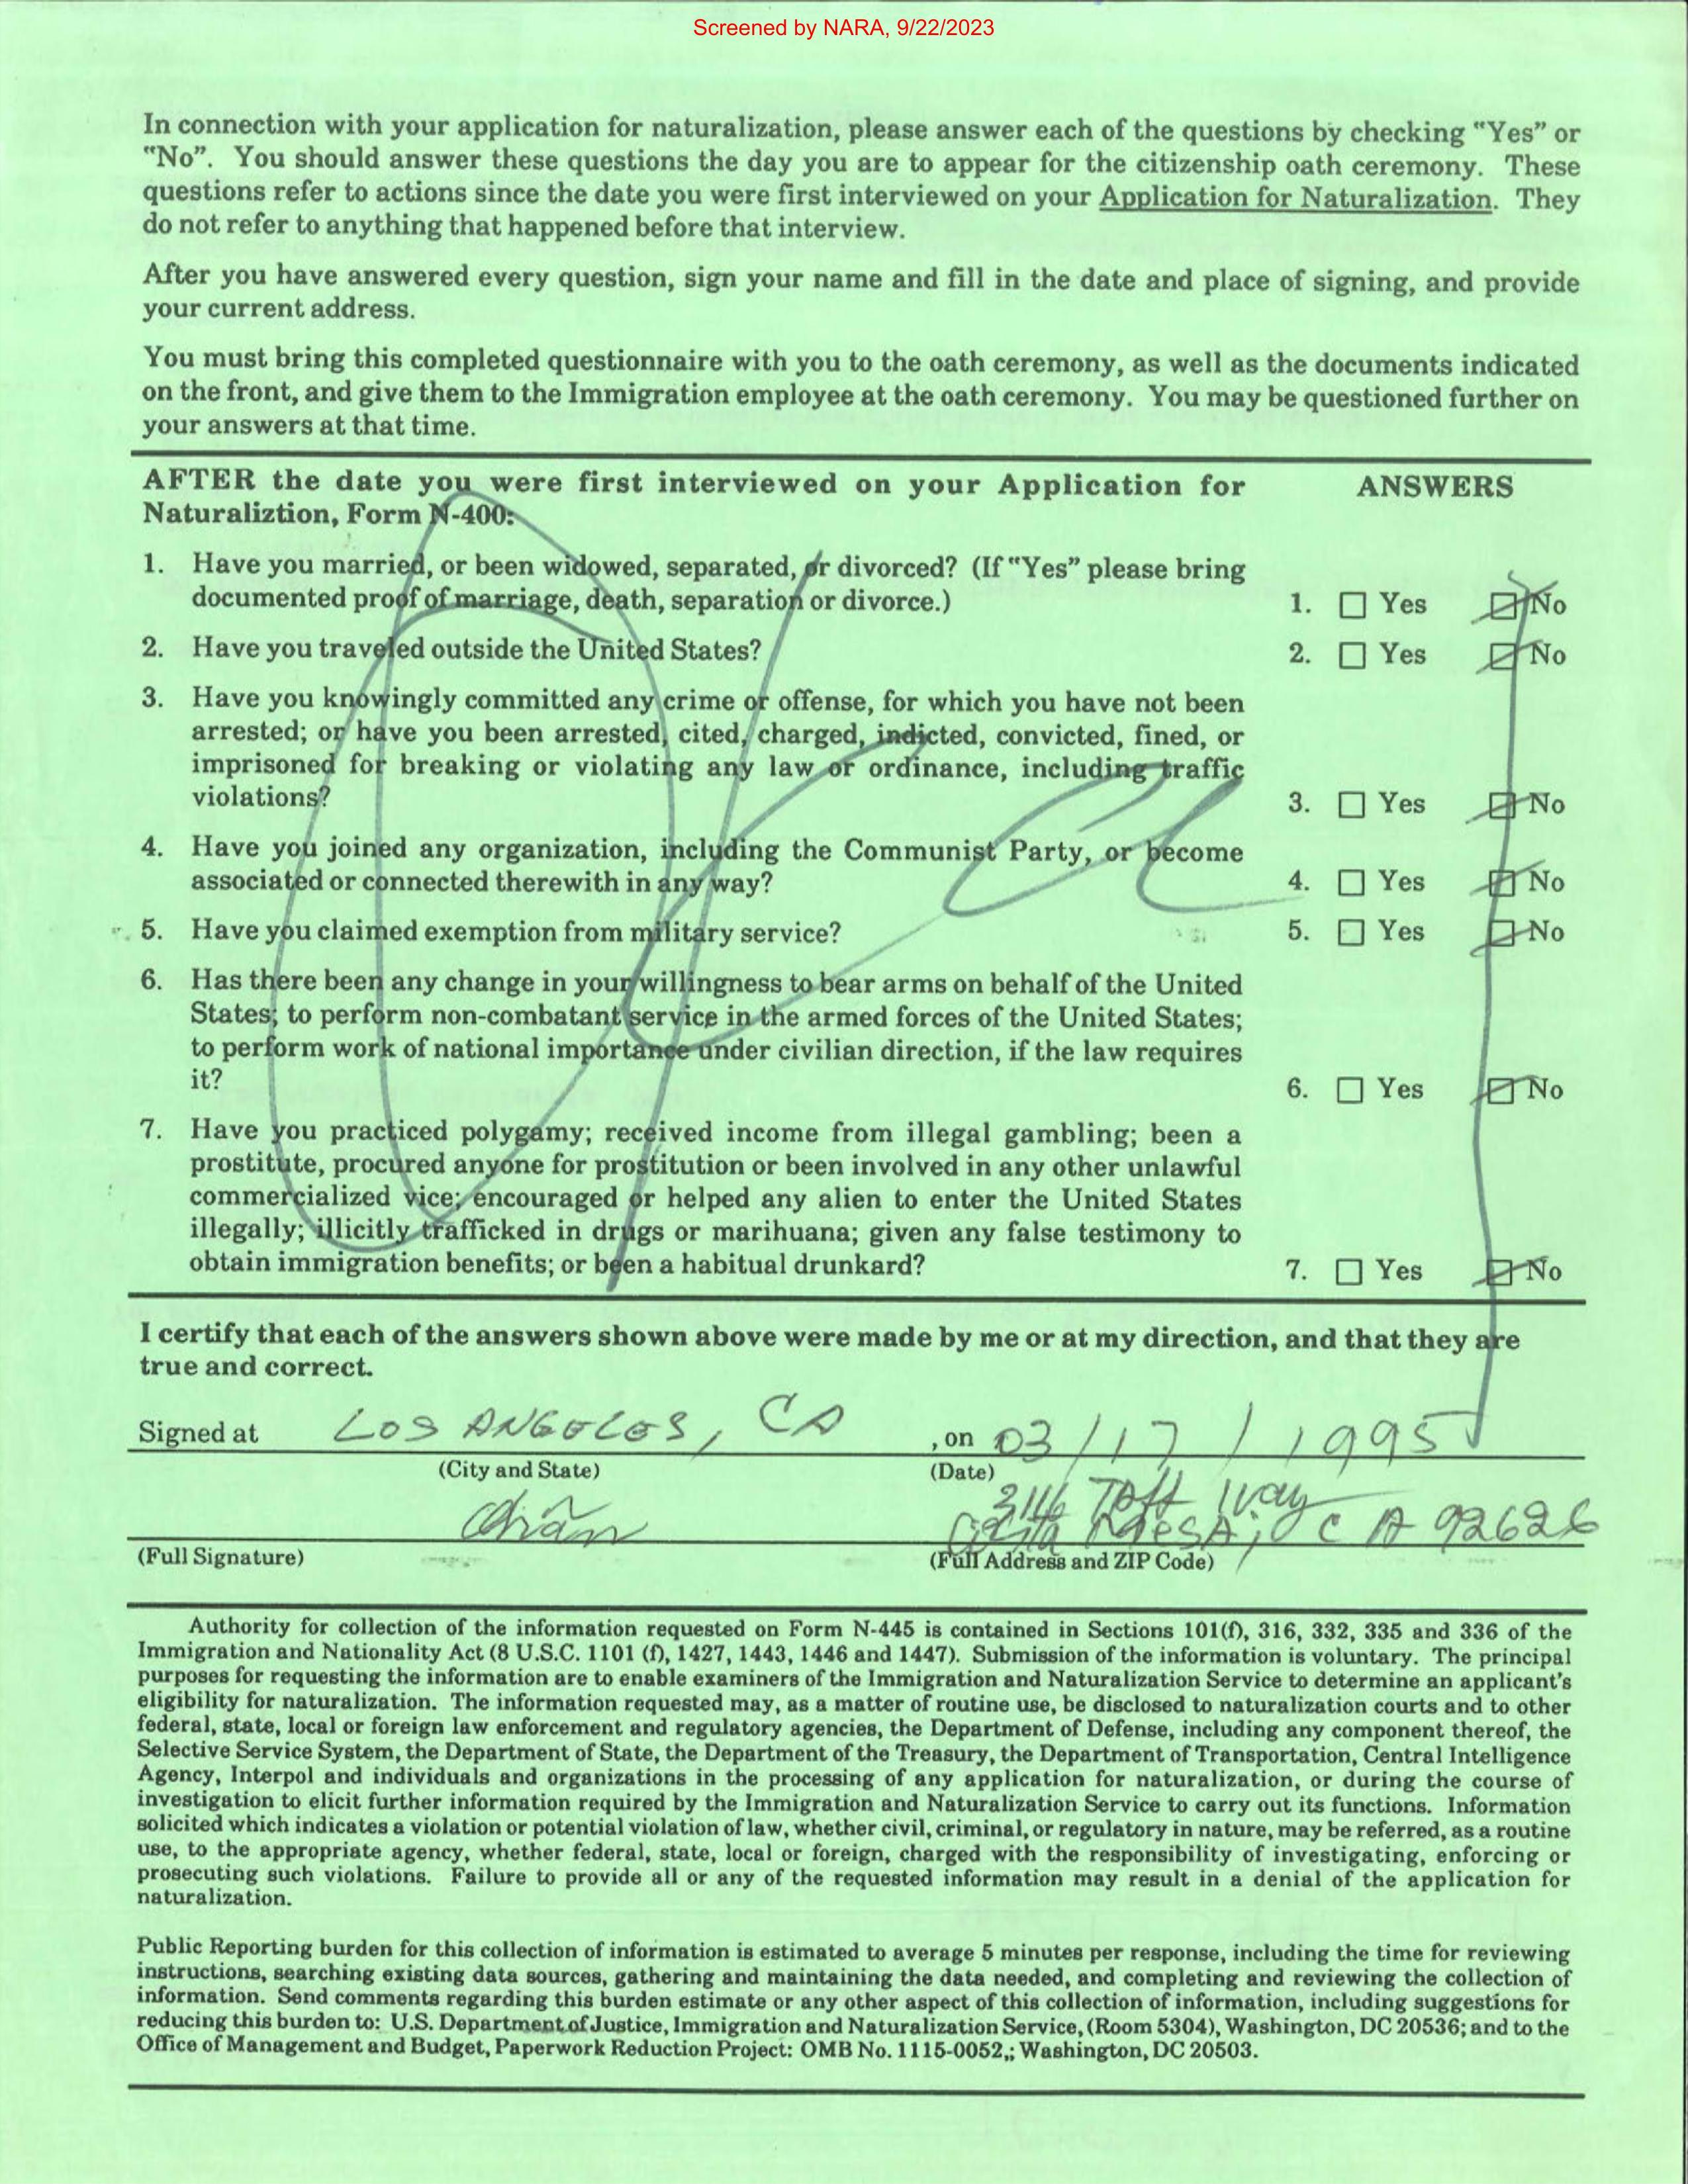 Screened by NARA, 9/22/2023
In connection with your application for naturalization, please answer each of the questions by checking "Yes" or
"No". You should answer these questions the day you are to appear for the citizenship oath ceremony. These
questions refer to actions since the date you were first interviewed on your Application for Naturalization. They
do not refer to anything that happened before that interview.
After you have answered every question, sign your name and fill in the date and place of signing, and provide
your current address.
You must bring this completed questionnaire with you to the oath ceremony, as well as the documents indicated
on the front, and give them to the Immigration employee at the oath ceremony. You may be questioned further on
your answers at that time.
AFTER the date you were first interviewed on your Application for ANSWERS
Naturaliztion, Form N-400:
1. Have you married, or been widowed, separated, or divorced? (If "Yes" please bring
documented proof of marriage, death, separation or divorce.) 1. ☐ Yes ☑ No
2. Have you traveled outside the United States? 2. ☐ Yes ☑ No
3. Have you knowingly committed any crime or offense, for which you have not been
arrested; or have you been arrested, cited, charged, indicted, convicted, fined, or
imprisoned for breaking or violating any law or ordinance, including traffic
violations? 3. ☐ Yes ☑ No
4. Have you joined any organization, including the Communist Party, or become
associated or connected therewith in any way? 4. ☐ Yes ☑ No
5. Have you claimed exemption from military service? 5. ☐ Yes ☑ No
6. Has there been any change in your willingness to bear arms on behalf of the United
States; to perform non-combatant service in the armed forces of the United States;
to perform work of national importance under civilian direction, if the law requires
it? 6. ☐ Yes ☑ No
7. Have you practiced polygamy; received income from illegal gambling; been a
prostitute, procured anyone for prostitution or been involved in any other unlawful
commercialized vice; encouraged or helped any alien to enter the United States
illegally; illicitly trafficked in drugs or marihuana; given any false testimony to
obtain immigration benefits; or been a habitual drunkard? 7. ☐ Yes ☑ No
I certify that each of the answers shown above were made by me or at my direction, and that they are
true and correct.
Signed at LOS ANGELES, CA , on 03/17/1995
(City and State) (Date)
3116 Taft Way
Costa Mesa, CA 92626
(Full Signature) (Full Address and ZIP Code)
Authority for collection of the information requested on Form N-445 is contained in Sections 101(f), 316, 332, 335 and 336 of the
Immigration and Nationality Act (8 U.S.C. 1101 (f), 1427, 1443, 1446 and 1447). Submission of the information is voluntary. The principal
purposes for requesting the information are to enable examiners of the Immigration and Naturalization Service to determine an applicant's
eligibility for naturalization. The information requested may, as a matter of routine use, be disclosed to naturalization courts and to other
federal, state, local or foreign law enforcement and regulatory agencies, the Department of Defense, including any component thereof, the
Selective Service System, the Department of State, the Department of the Treasury, the Department of Transportation, Central Intelligence
Agency, Interpol and individuals and organizations in the processing of any application for naturalization, or during the course of
investigation to elicit further information required by the Immigration and Naturalization Service to carry out its functions. Information
solicited which indicates a violation or potential violation of law, whether civil, criminal, or regulatory in nature, may be referred, as a routine
use, to the appropriate agency, whether federal, state, local or foreign, charged with the responsibility of investigating, enforcing or
prosecuting such violations. Failure to provide all or any of the requested information may result in a denial of the application for
naturalization.
Public Reporting burden for this collection of information is estimated to average 5 minutes per response, including the time for reviewing
instructions, searching existing data sources, gathering and maintaining the data needed, and completing and reviewing the collection of
information. Send comments regarding this burden estimate or any other aspect of this collection of information, including suggestions for
reducing this burden to: U.S. Department of Justice, Immigration and Naturalization Service, (Room 5304), Washington, DC 20536; and to the
Office of Management and Budget, Paperwork Reduction Project: OMB No. 1115-0052,; Washington, DC 20503.